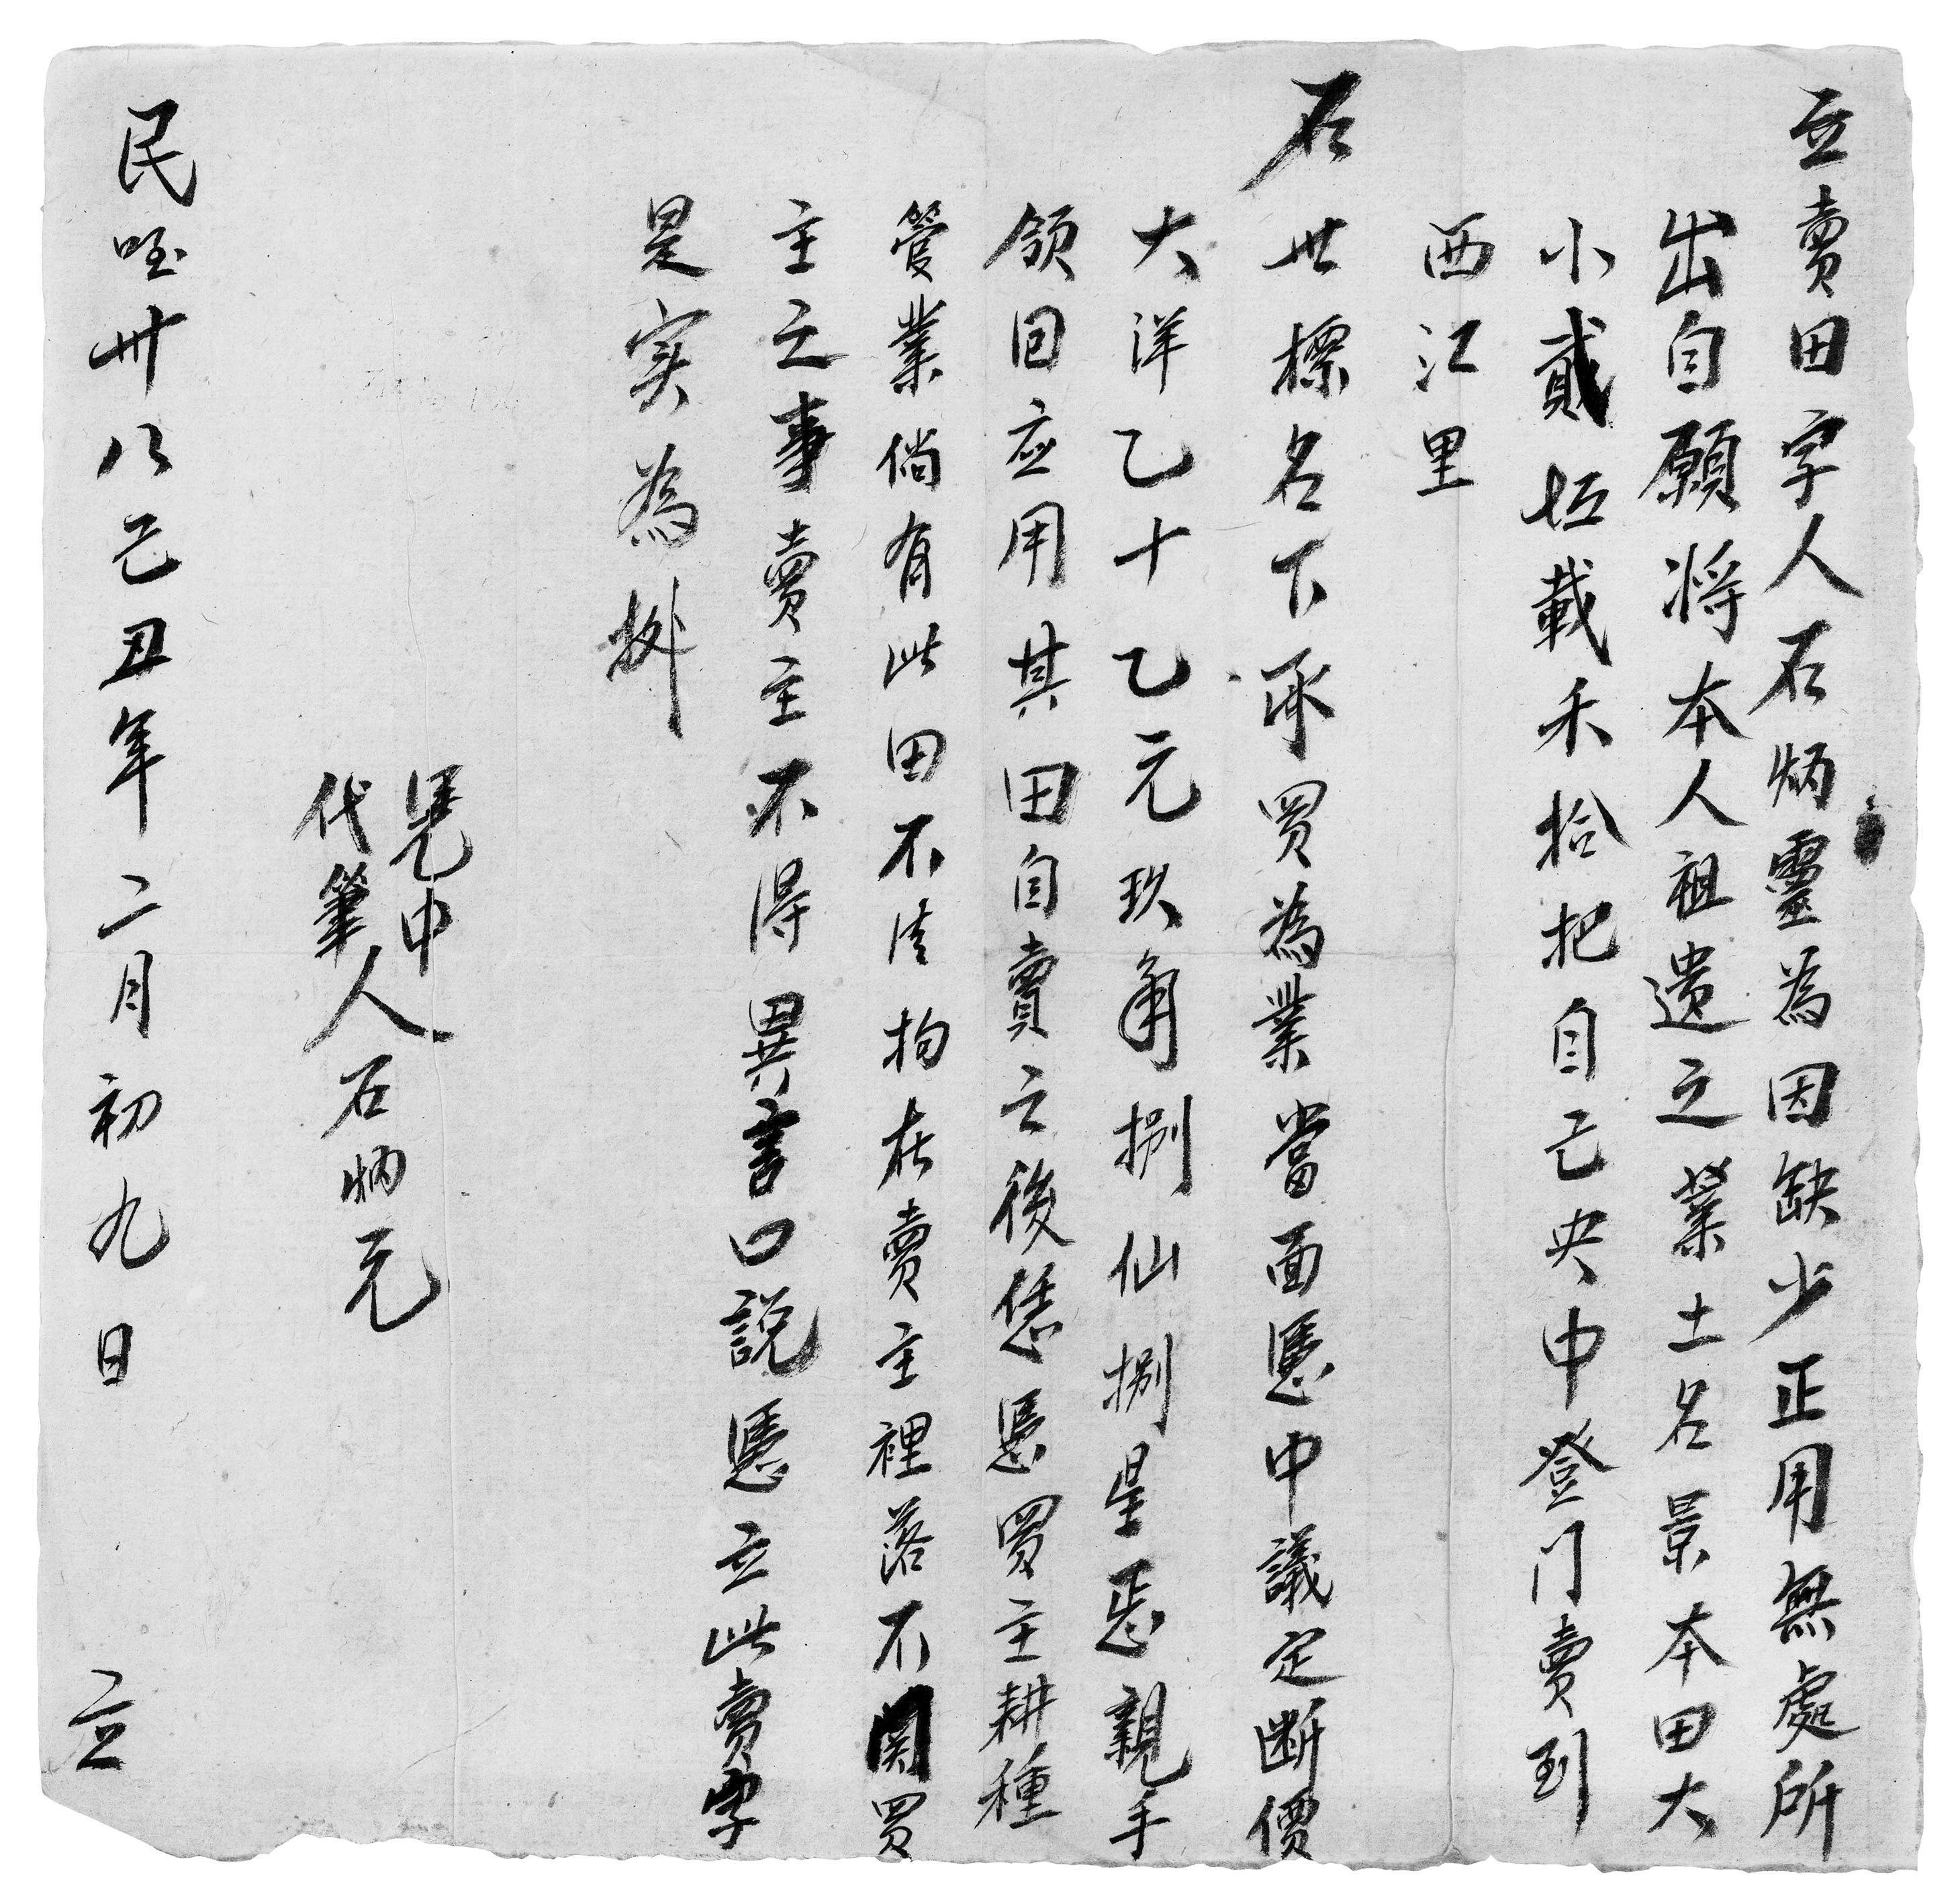 立賣田字人石炳靈為因缺少正用無處所
出自願將本人祖遺之業土名景本田大
小貳坵載禾拾把自己央中登门賣到
西江里
石世標名下承買為業當面憑中議定断價
大洋乙十乙元玖角捌仙捌星恁親手
領回应用其田自賣之後恁憑買主耕種
管業倘有此田不清拘在賣主裡落不関買
主之事賣主不得異言口説憑立此賣字
是实為拠
凭中
代筆人石炳元
民國卅八己丑年二月初九日 立